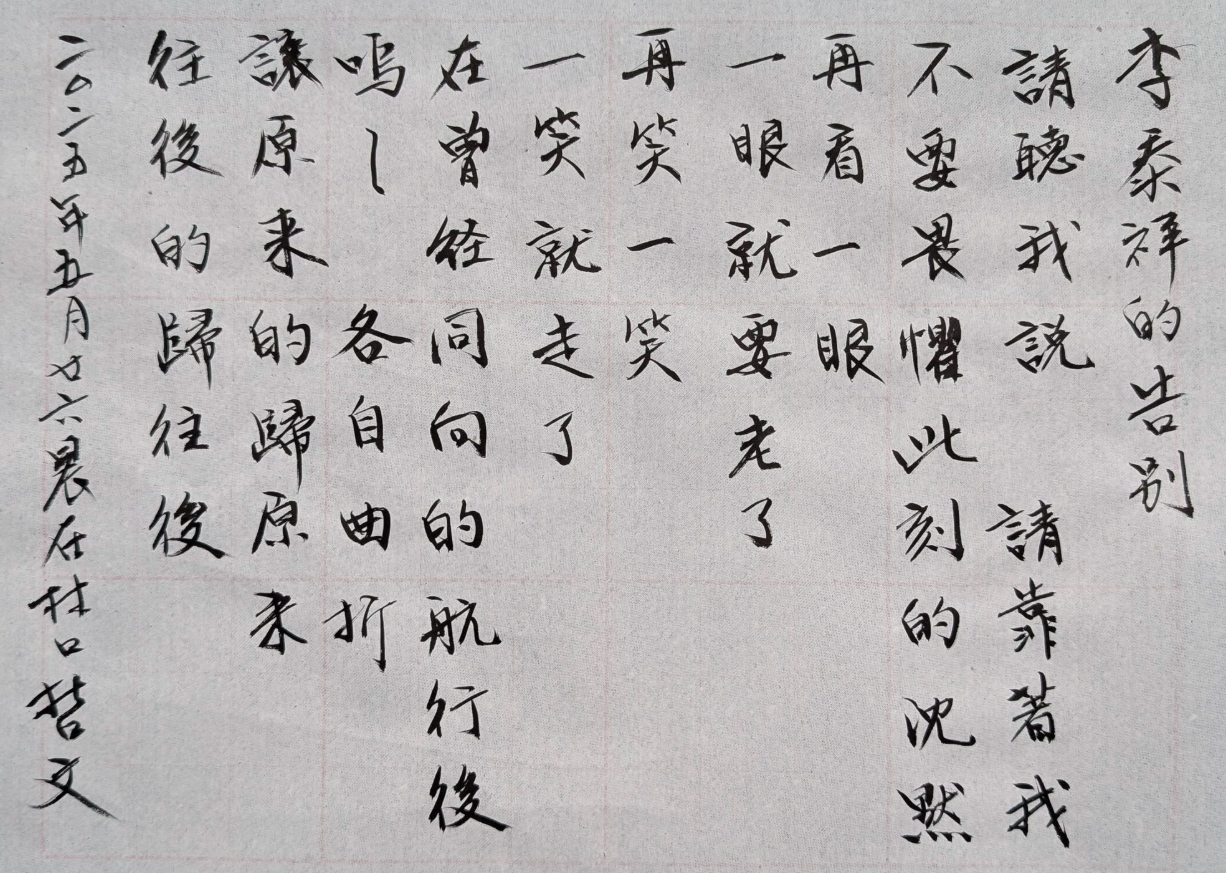 李泰祥的告別
請聽我説 請靠著我
不要畏懼此刻的沈默
再看一眼
一眼就要老了
再笑一笑
一笑就走了
在曾経同向的航行後
嗚〜 各自曲折
讓原来的歸原来
往後的歸往後
二〇二五年五月廿六晨在林口哲文